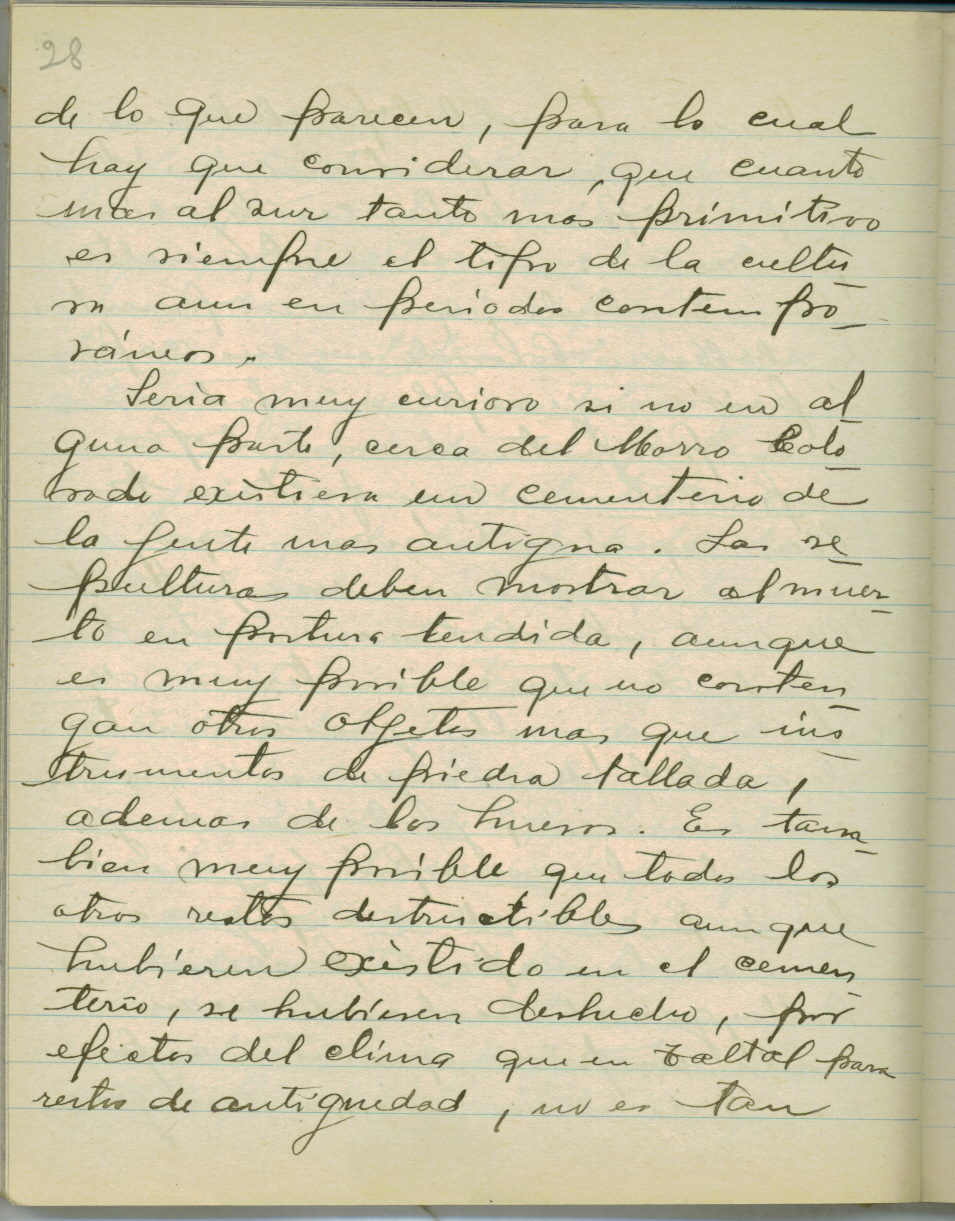 28
de lo que parecen, para lo cual
hay que considerar, que cuanto
mas al sur tanto mas primitivo
es siempre el tipo de la cultu
ra aun en periodos contem po_
ráneos.
Seria muy curioso si no en al
guna parte, cerca del Morro Colo
rado existiera un cementerio de
la gente mas antigua. Las se
pulturas deben mostrar al muer_
to en postura tendida, aunque
es muy posible que no conten
gan otros objetos mas que ins
trumentos de piedra tallada,
ademas de los huesos. Es tam_
bien muy posible, que todos los
otros restos destructibles aunque
hubieren existido en el cemen
terio, se hubiesen deshecho, por
efectos del clima que en Taltal para
restos de antiguedad, no es tan